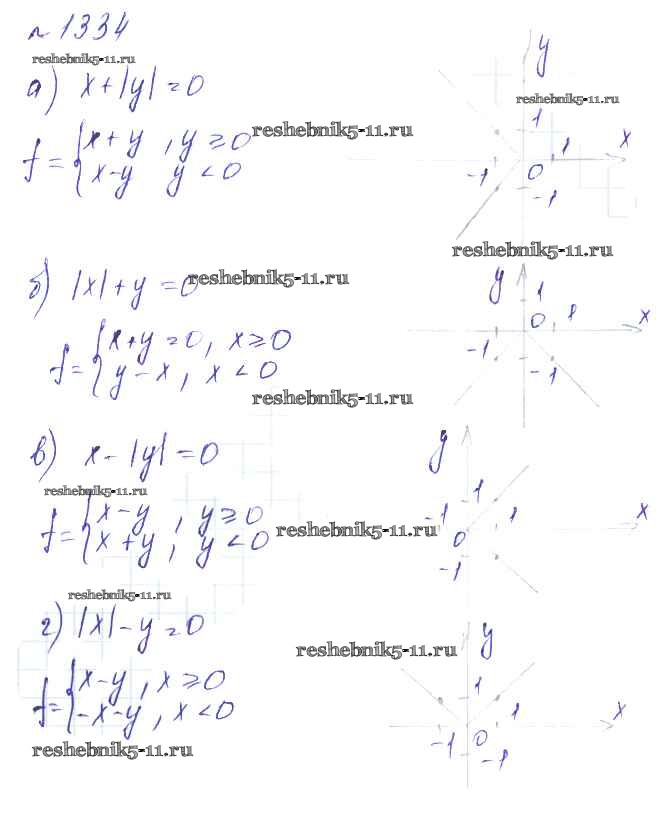 № 1334
reshebnik5-11.ru
а) x+|y|=0
y
reshebnik5-11.ru
f= { x+y , y≥0
x-y y<0
reshebnik5-11.ru
1
1
x
-1
0
-1
reshebnik5-11.ru
б) |x|+y=0
reshebnik5-11.ru
f= { x+y=0, x≥0
y-x, x<0
reshebnik5-11.ru
y
1
0
1
x
-1
-1
в) x-|y|=0
reshebnik5-11.ru
f= { x-y , y≥0
x+y, y<0
reshebnik5-11.ru
y
1
-1
1
x
0
-1
reshebnik5-11.ru
г) |x|-y=0
reshebnik5-11.ru
f= { x-y, x≥0
-x-y, x<0
reshebnik5-11.ru
y
1
1
x
-1
0
-1